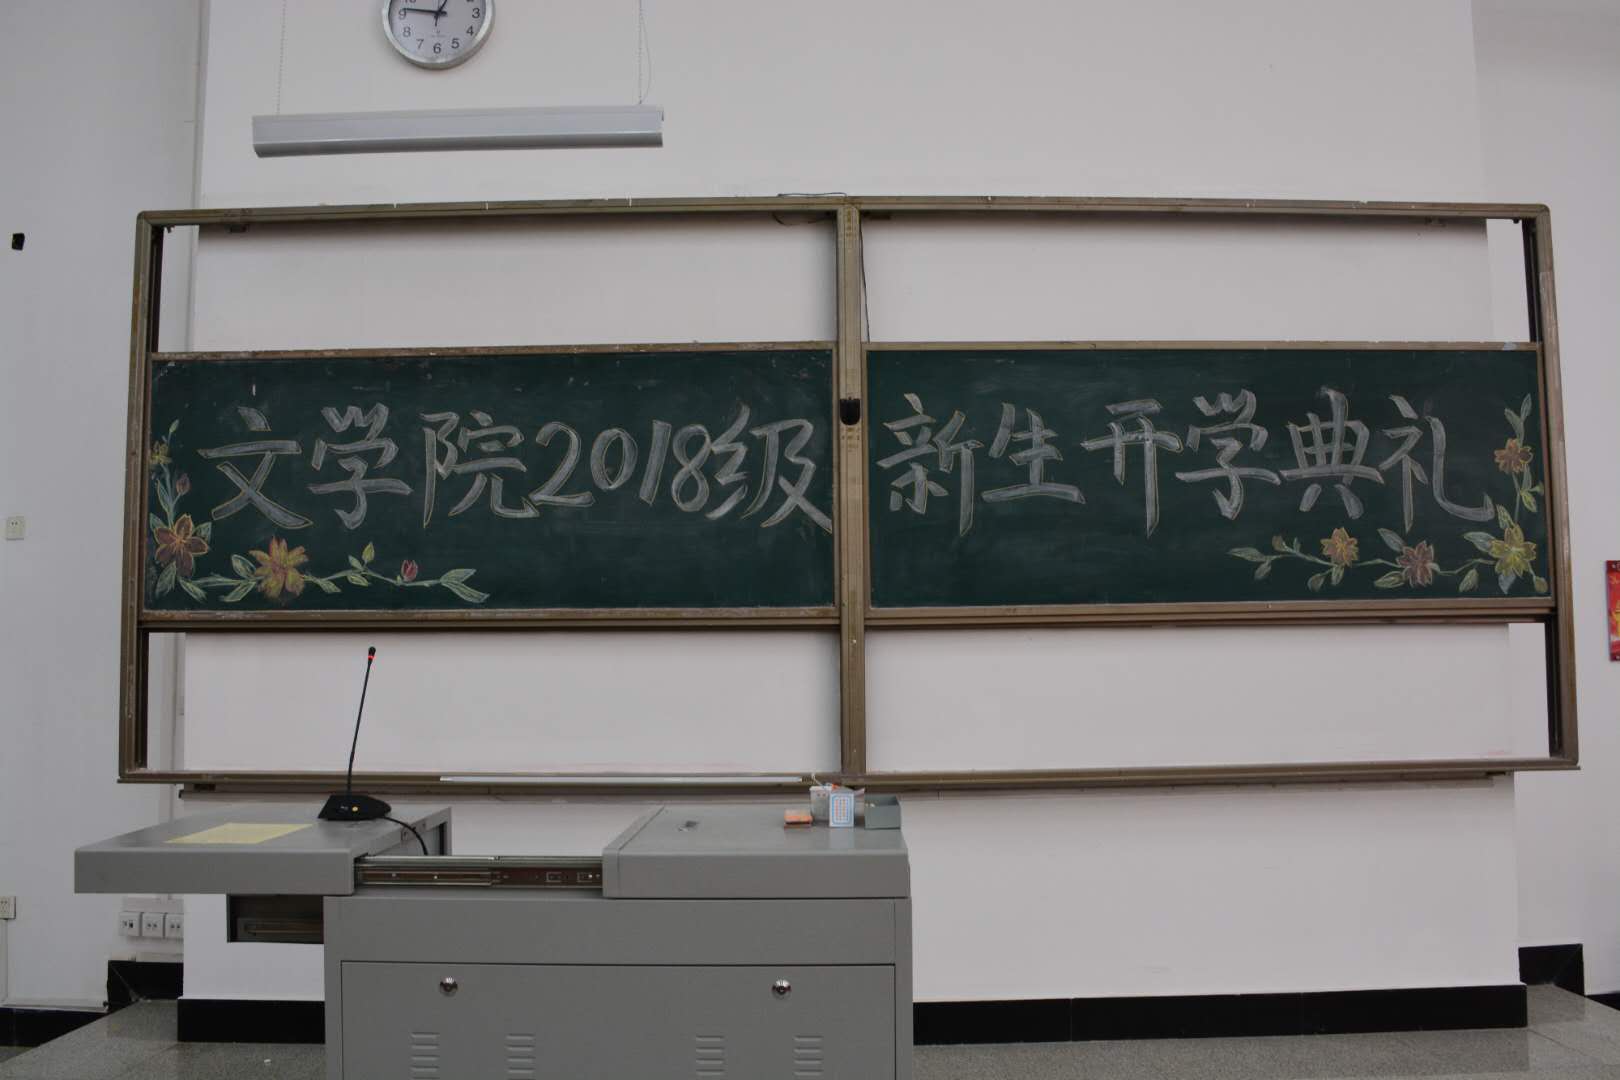 文学院2018级新生开学典礼
9 3 8 4 7 6 5